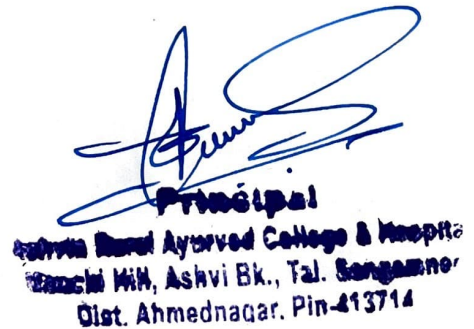 Principal
Rural Ayurved College & Hospita
Manchi Hill, Ashvi Bk., Tal. Sangamner
Dist. Ahmednagar. Pin-413714